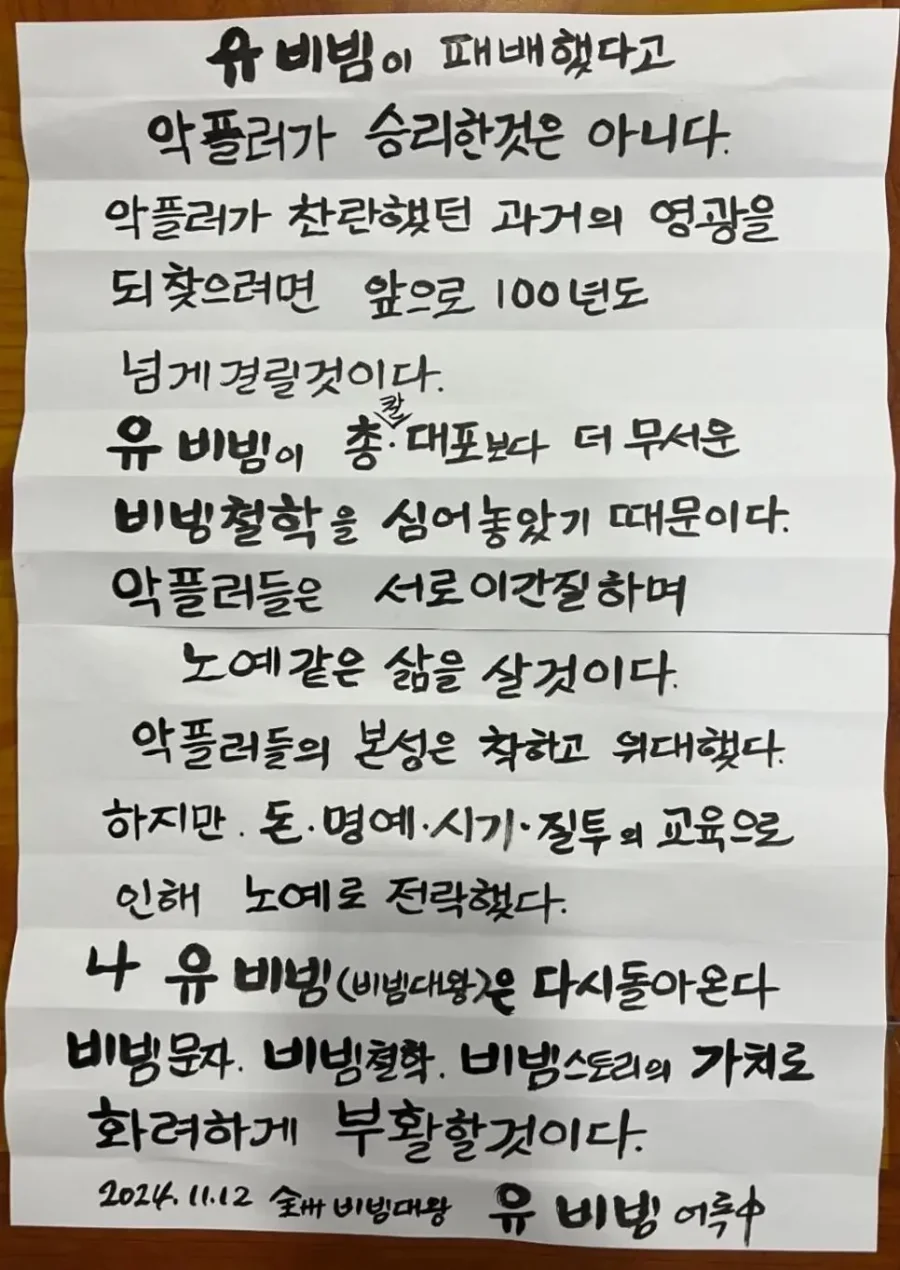 유비빔이 패배했다고
악플러가 승리한것은 아니다.
악플러가 찬란했던 과거의 영광을
되찾으려면 앞으로 100년도
넘게걸릴것이다.
유비빔이 총·칼·대포보다 더 무서운
비빔철학을 심어놓았기 때문이다.
악플러들은 서로이간질하며
노예같은 삶을 살것이다.
악플러들의 본성은 착하고 위대했다.
하지만. 돈·명예·시기·질투의 교육으로
인해 노예로 전락했다.
나 유비빔(비빔대왕)은 다시돌아온다
비빔문자. 비빔철학. 비빔스토리의 가치로
화려하게 부활할것이다.
2024.11.12 全州 비빔대왕 유비빔